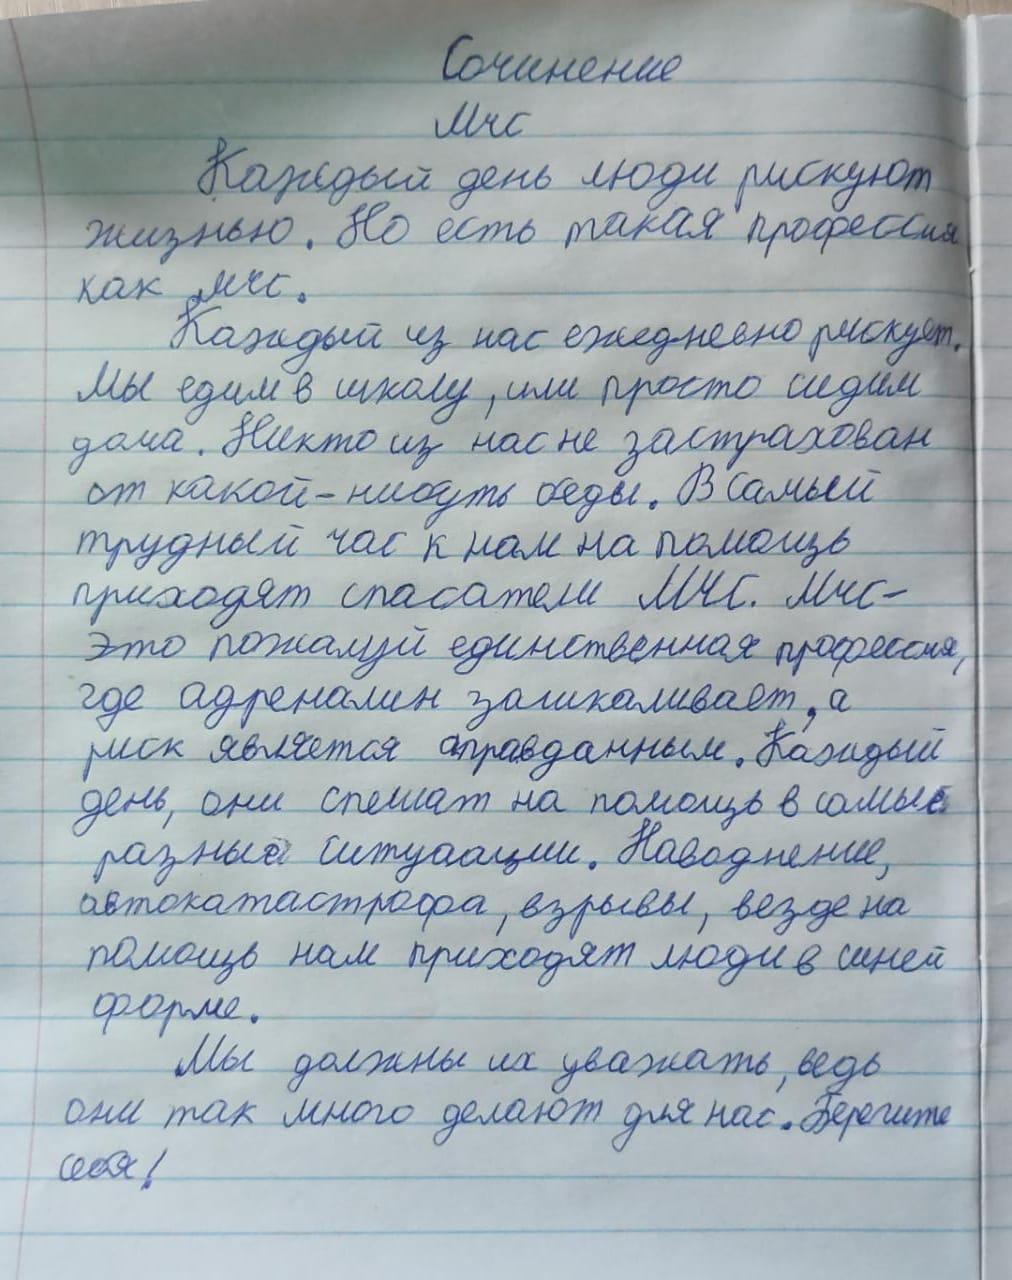 Сочинение
Мчс
Каждый день люди рискуют
жизнью. Но есть такая профессия
как мчс.
Каждый из нас ежедневно рискует.
Мы едим в школу, или просто сидим
дома. Никто из нас не застрахован
от какой-нибуть беды. В самый
трудный час к нам на помощь
приходят спасатели МЧС. Мчс-
это пожалуй единственная профессия,
где адреналин зашкаливает, а
риск является оправданным. Каждый
день, они спешат на помощь в самые
разные ситуаации. Наводнение,
автокатастрофа, взрывы, везде на
помощь нам приходят люди в синей
форме.
Мы должны их уважать, ведь
они так много делают для нас. Берегите
себя!